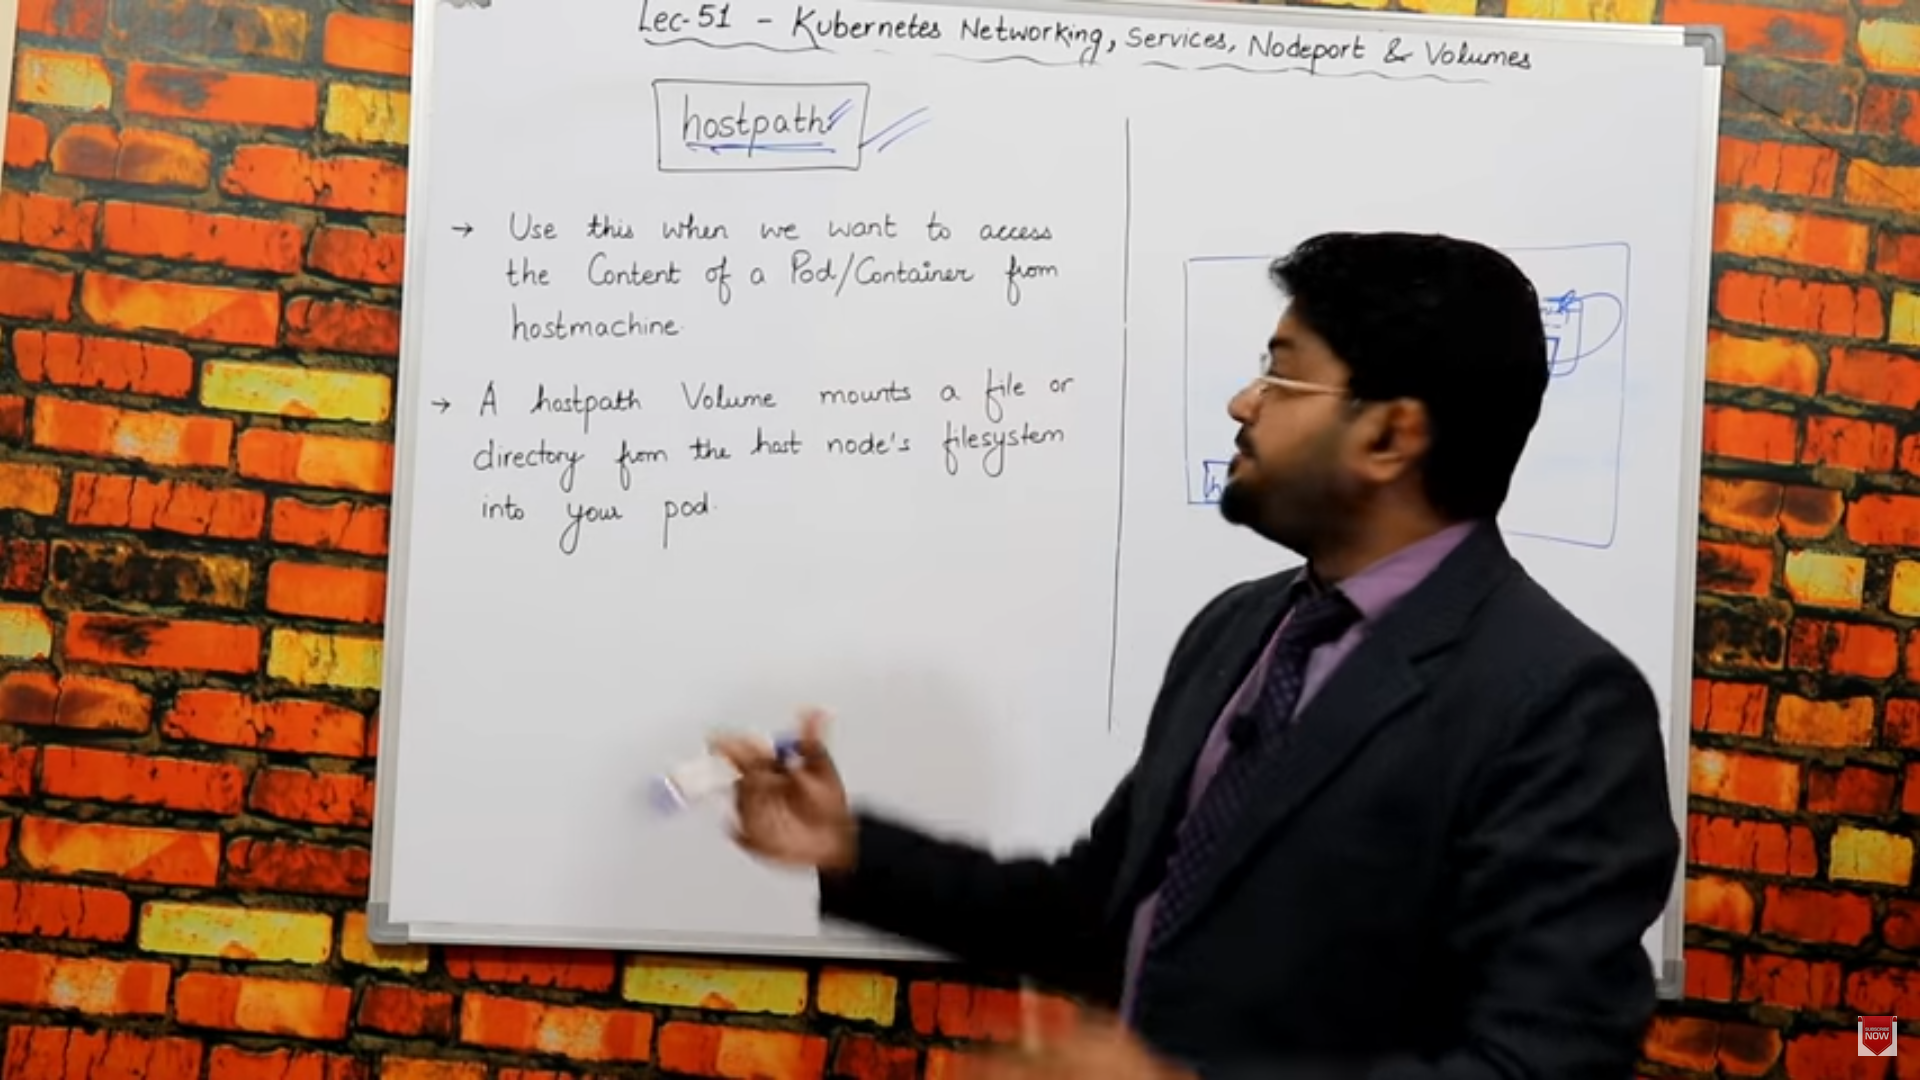 Lec-51 - Kubernetes Networking, Services, Nodeport & Volumes
hostpath
→ Use this when we want to access
the Content of a Pod/Container from
hostmachine.
→ A hostpath Volume mounts a file or
directory from the host node's filesystem
into your pod.
SUBSCRIBE
NOW